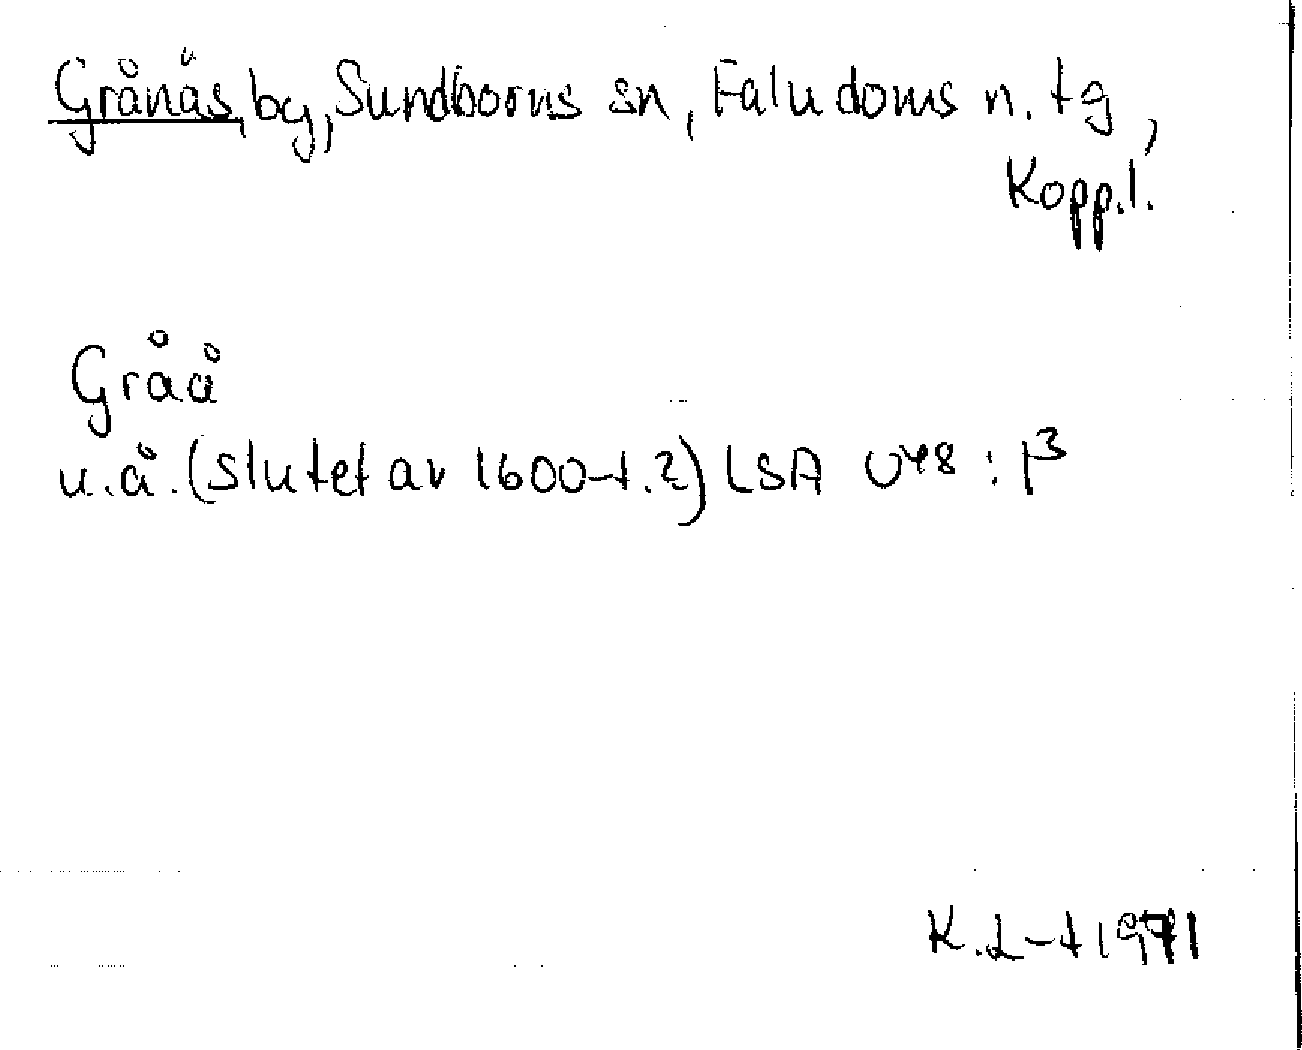 Grånäs, by, Sundborns sn, Falu doms n. tg,
Kopp.l.
Gråå
u.å. (slutet av 1600-t.?) LSA U48 : 1³
K.L-t 1971